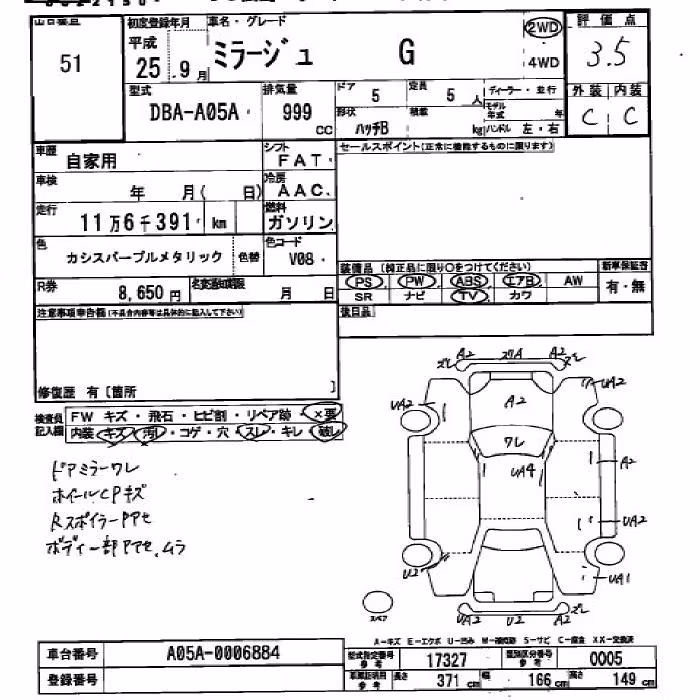 初度登録年月 車名・グレード 評価点
51 平成 25.9月 ミラージュ G 2WD 4WD 3.5
型式 排気量 ドア 定員 ディーラー・並行 外装 内装
DBA-A05A 999 cc 5 5人 モデル年式 年 C C
形状 積載
ハッチB kg ハンドル 左・右
車歴 自家用 シフト FAT セールスポイント(正常に機能するものに限ります)
車検 年 月( 日) 冷房 AAC
走行 11万6千391 km 燃料 ガソリン
色 カシスパープルメタリック 色替 色コード V08
装備品 (純正品に限り○をつけてください) 新車保証書
R券 8,650円 名変通知期限 月 日 PS PW ABS エアB AW 有・無
SR ナビ TV カワ
注意事項申告欄(不具合内容等は具体的に記入して下さい) 後日品
修復歴 有 [箇所 ]
検査員記入欄 FW キズ・飛石・ヒビ割・リペア跡・×要
内装 キズ・汚れ・コゲ・穴・スレ・キレ・破れ
ドアミラーワレ
ホイールCPキズ
Rスポイラーアセ
ボディー部アセ、ムラ
ズレ A2 スリA A2 ズレ
UA2 A2 UA2
ワレ
UA4 A2
UA2
U2 UA1
スペア UA2 U2 A2 ズレ
A-キズ E-エクボ U-凹み W-補修跡 S-サビ C-腐食 XX-交換済
車台番号 A05A-0006884 型式指定番号 参考 17327 類別区分番号 参考 0005
登録番号 車庫証明用 参考 長さ 371cm 幅 166cm 高さ 149cm